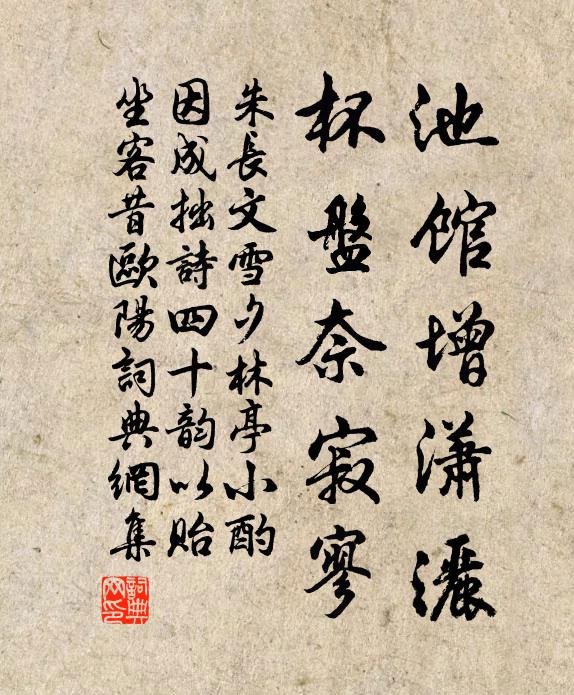 池館增瀟灑
杯盤奈寂寥
朱長文雪夕林亭小酌
因成拙詩四十韵以貽
坐客昔歐陽詞典網集
詞典
网印